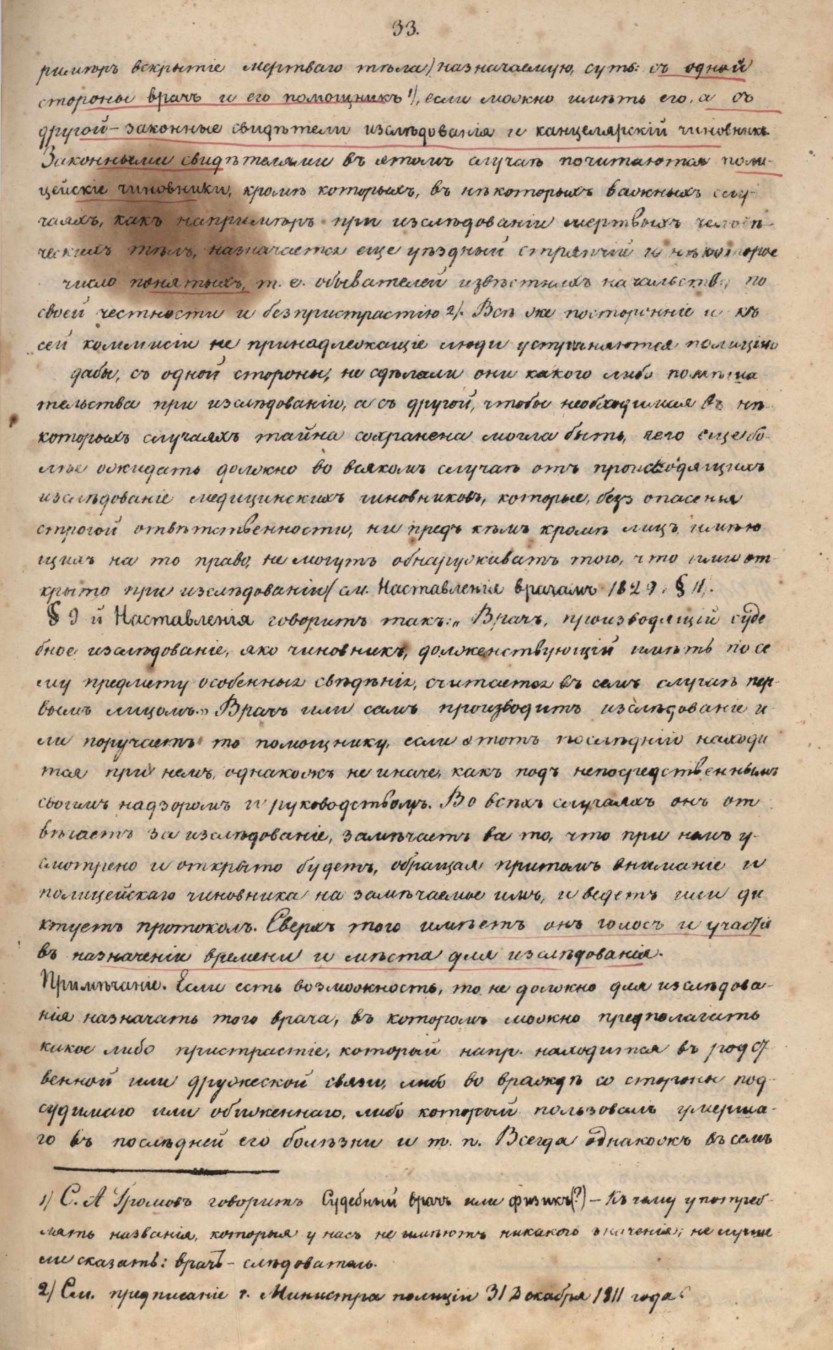 33.
римѣръ вскрытіе мертваго тѣла) назначаемую, суть: съ одной
стороны врачъ и его помощникъ 1), если можно имѣть его, а съ
другой – законные свидѣтели изслѣдованія и канцелярскій чиновникъ.
Законными свидѣтелями въ этомъ случаѣ почитаются поли-
цейскіе чиновники, кромѣ которыхъ, въ нѣкоторыхъ важныхъ слу-
чаяхъ, какъ напримѣръ при изслѣдованіи мертвыхъ человѣ-
ческихъ тѣлъ, назначается еще уѣздный стряпчій и нѣкоторое
число понятыхъ, т. е. обывателей извѣстныхъ начальству, по
своей честности и безпристрастію 2). Всѣ же посторонніе и къ
сей коммисіи не принадлежащіе люди устраняются полиціею
дабы, съ одной стороны, не сдѣлали они какого либо помѣша
тельства при изслѣдованіи, а съ другой, чтобы необходимая въ нѣ
которыхъ случаяхъ тайна сохранена могла быть, чего еще бо
лѣе ожидать должно во всякомъ случаѣ отъ производящихъ
изслѣдованіе медицинскихъ чиновниковъ, которые, безъ опасенья
строгой отвѣтственности, ни предъ кѣмъ кромѣ лицъ, имѣю
щихъ на то право, не могутъ обнаруживать того, что ими от
крыто при изслѣдованіи/ см. Наставленія врачамъ 1829. § 11.
§ 9 й Наставленія говоритъ такъ: „ Врачъ, производящій суде
бное изслѣдованіе, яко чиновникъ, долженствующій имѣть по се
му предмету особенныя свѣдѣнія, считается въ семъ случаѣ пер
вымъ лицомъ.„ Врачъ или самъ производитъ изслѣдованіе и
ли поручаетъ то помощнику, если этотъ послѣдній находи
тся при немъ, однакожъ не иначе, какъ подъ непосредственнымъ
своимъ надзоромъ и руководствомъ. Во всѣхъ случаяхъ онъ от
вѣчаетъ за изслѣдованіе, замѣчаетъ все то, что при немъ у-
смотрено и открыто будетъ, обращая притомъ вниманіе и
полицейскаго чиновника на замѣчаемое имъ, и ведетъ или ди
ктуетъ протоколъ. Сверхъ того имѣетъ онъ голосъ и участіе
въ назначеніи времени и мѣста для изслѣдованія.
Примѣчаніе. Если есть возможность, то не должно для изслѣдова-
нія назначать того врача, въ которомъ можно предполагать
какое либо пристрастіе, который напр. находится въ родст
венной или дружеской связи, либо во враждѣ со стороны под-
судимаго или обиженнаго, либо который пользовалъ умерша-
го въ послѣдней его болѣзни и т. п. Всегда однакожъ въ семъ
1) С. А. Громовъ говоритъ Судебный врачъ или физикъ(?) – Къ чему употреб-
лять названія, которыя у насъ не имѣютъ никакого значенія; не лучше
ли сказать: врачъ – слѣдователь.
2) См. предписаніе г. Министра полиціи 31 Декабря 1811 года.